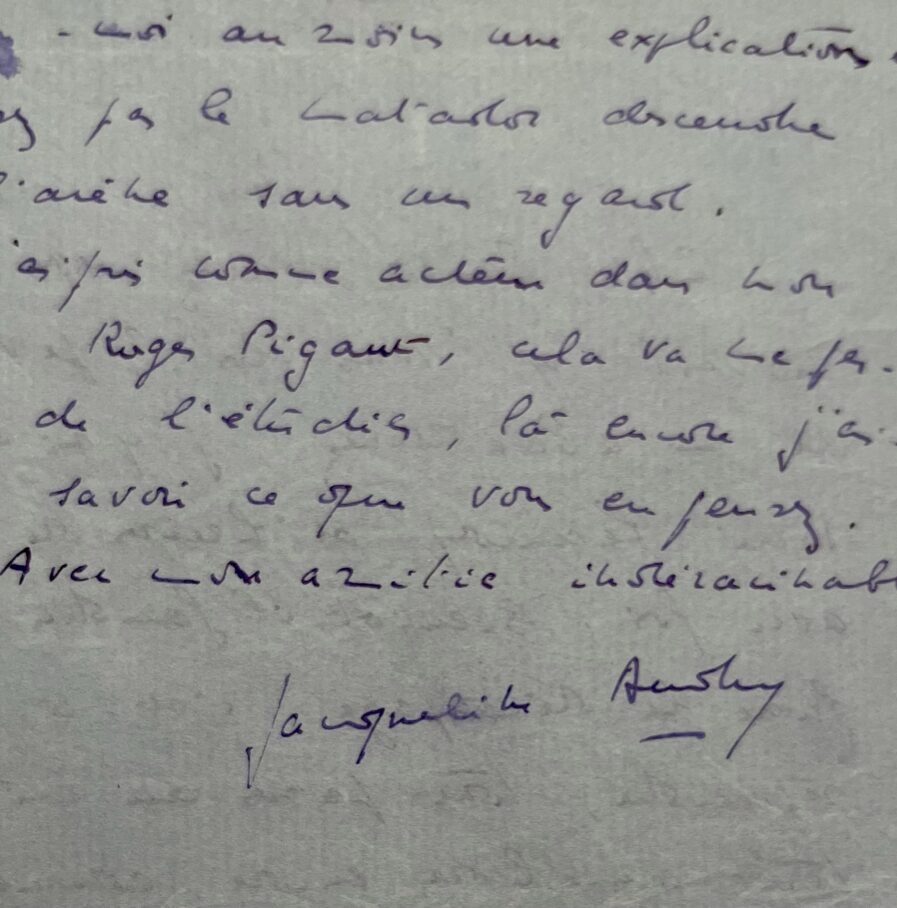 -moi au moins une explication.
pas le matador descendre
l'arène sans un regard.
ai pris comme acteur dans mon
Roger Pigaut, cela va me per-
de l'étudier, là encore j'ai
savoir ce que vous en pensez.
Avec mon amitié indéracinab
Jacqueline Audry